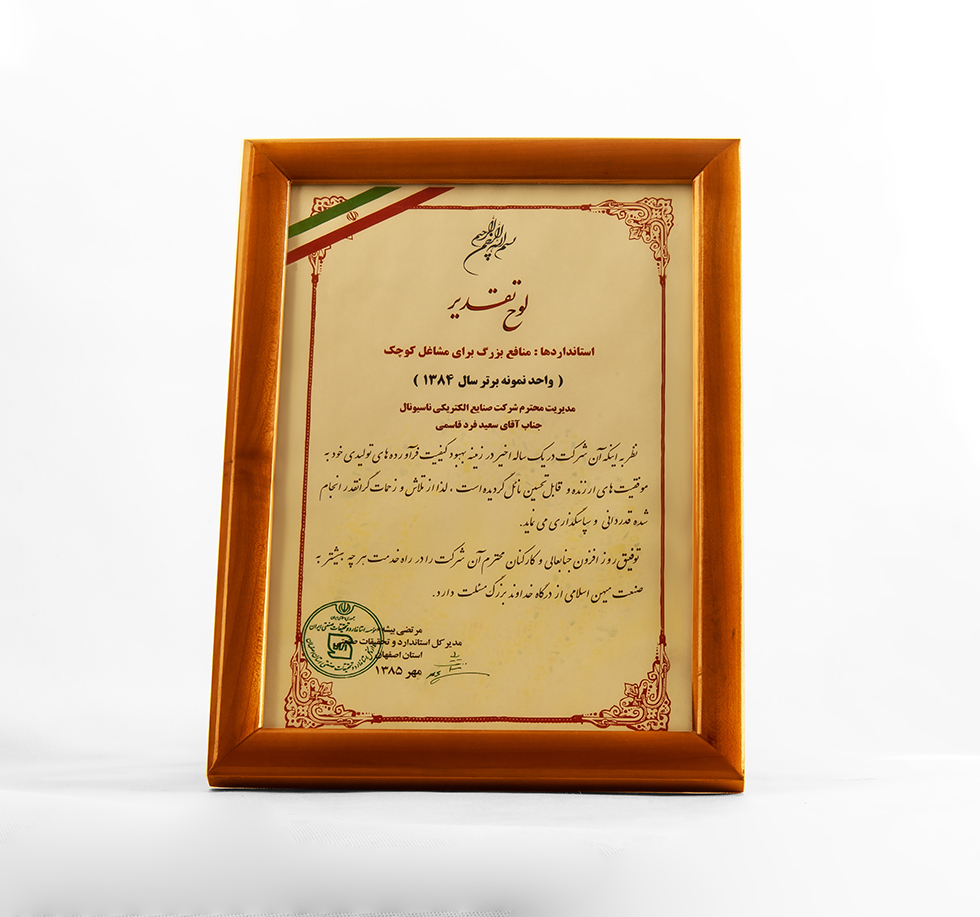 بسم الله الرحمن الرحیم
لوح تقدیر
استانداردها : منافع بزرگ برای مشاغل کوچک
( واحد نمونه برتر سال ۱۳۸۴ )
مدیریت محترم شرکت صنایع الکتریکی ناسیونال
جناب آقای سعید فرد قاسمی
نظر به اینکه آن شرکت در یک ساله اخیر در زمینه بهبود کیفیت فرآورده های تولیدی خود به
موفقیت های ارزنده و قابل تحسین نائل گردیده است ، لذا از تلاش و زحمات گرانقدر انجام
شده قدردانی و سپاسگذاری می نماید.
توفیق روز افزون جنابعالی و کارکنان محترم آن شرکت را در راه خدمت هر چه بیشتر به
صنعت میهن اسلامی از درگاه خداوند بزرگ مسئلت دارد.
مرتضی
مدیر کل استاندارد و تحقیقات
استان اصفهان
مهر ۱۳۸۵